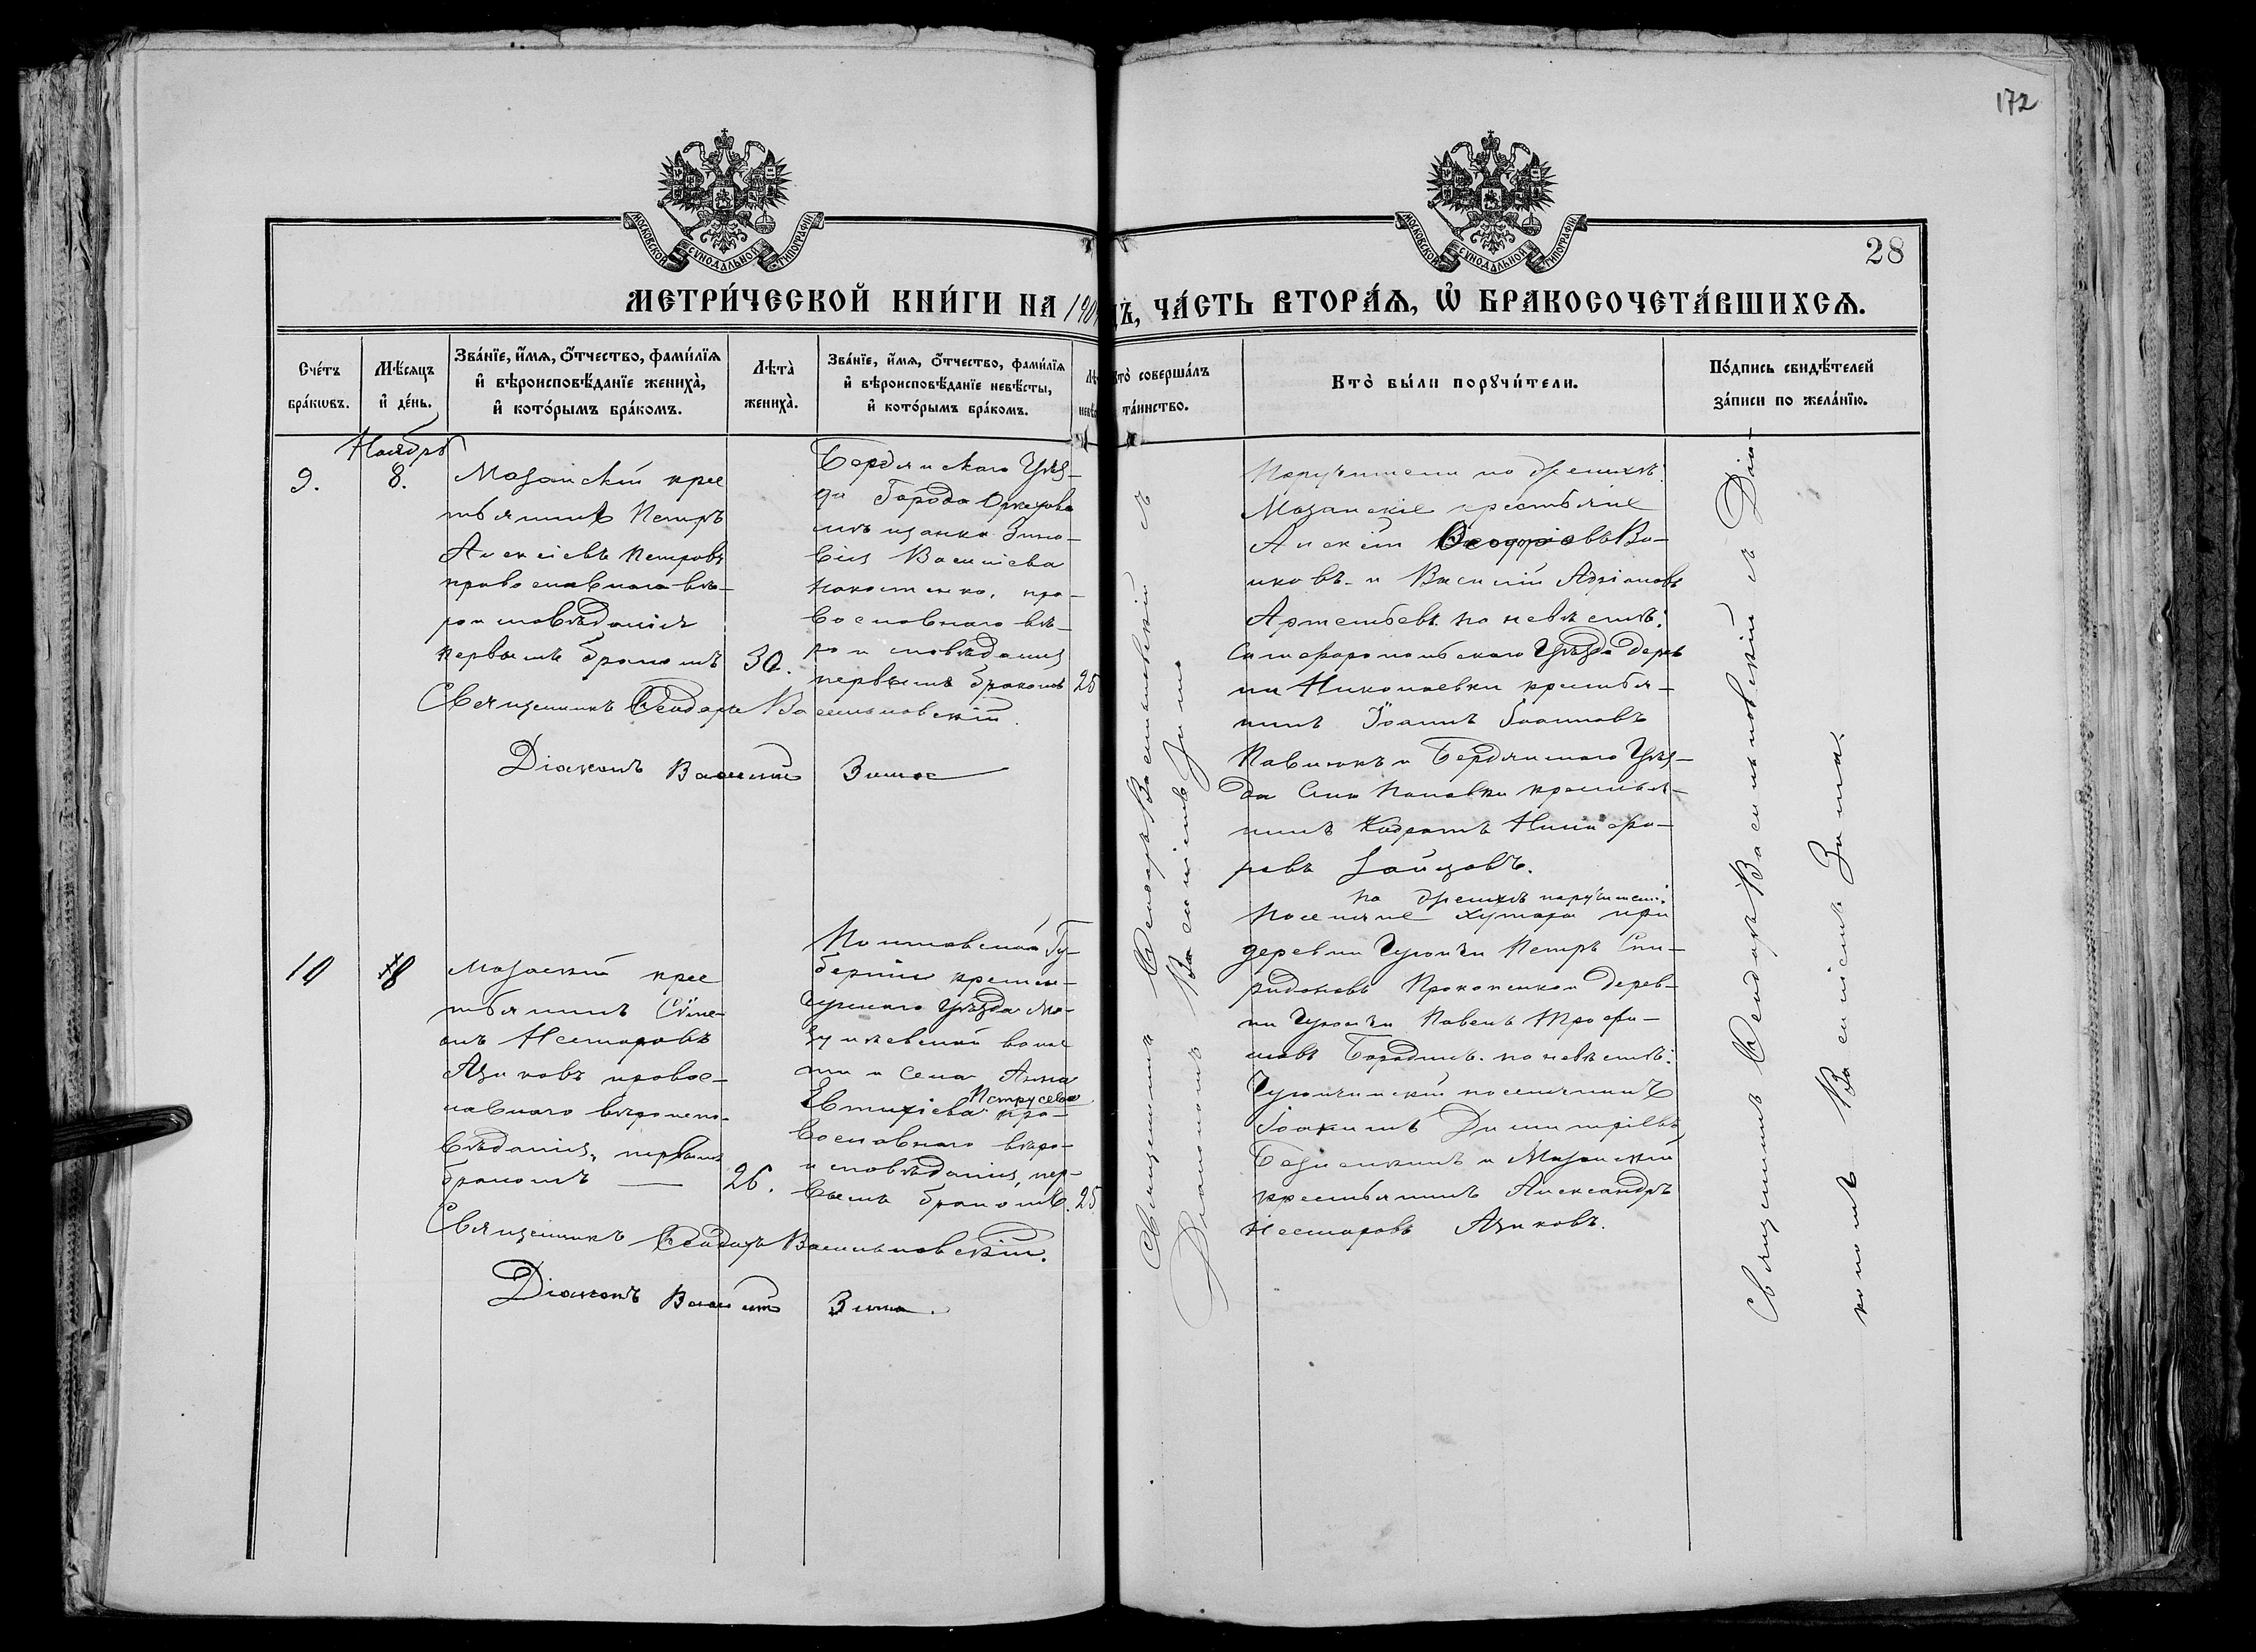 172
МОСКОВСКОЙ СѴНОДАЛЬНОЙ ТИПОГРАФІИ
МОСКОВСКОЙ СѴНОДАЛЬНОЙ ТИПОГРАФІИ
28
МЕТРИ́ЧЕСКОЙ КНИ́ГИ НА 190
ДЪ, ЧА́СТЬ ВТОРА́Ѧ, Ѡ҆ БРАКОСОЧЕТА́ВШИХСѦ.
Сче́тъ
бра́кѡвъ.
Мѣ́сѧцъ
и҆ де́нь.
Зва́нїе, и҆́мѧ, ѻ҆́тчество, фамѝлїѧ
и҆ вѣроисповѣ́данїе жениха̀,
и҆ кото́рымъ бра́комъ.
Лѣта̀
жениха̀.
Зва́нїе, и҆́мѧ, ѻ҆́тчество, фамѝлїѧ
и҆ вѣроисповѣ́данїе невѣ́сты,
и҆ кото́рымъ бра́комъ.
Лѣ
невѣ
то̀ соверша́лъ
та́инство.
Кто̀ бы́ли порꙋчи́тели.
По́дпись свидѣ́телей
за́писи по жела́нїю.
Ноябрь
9.
8.
Мазанскій крес
тьянинъ Петръ
Алексіевъ Петровъ
православнаго вѣ-
роисповѣданія
первымъ бракомъ
30.
Бердянскаго Уѣз-
да Города Орѣхова
мѣщанка Зино-
вія Василіева
пра-
вославнаго вѣ-
роисповѣданія
первымъ бракомъ
25
Священникъ Ѳеодоръ Васильковскій.
Діаконъ Василій Зима
Поручители по женихѣ:
Мазанскіе крестьяне
Алексій Во-
лковъ и Василій Адріановъ
Артемьевъ. по невѣстѣ:
Симферопольскаго Уѣзда дерев
ни Николаевки крестья-
нинъ Іоаннъ Іоанновъ
Павлюкъ и Бердянскаго Уѣз-
да Села Поповки крестья-
нинъ Кодратъ Никифо-
ровъ Зайцовъ.
Священникъ Ѳеодоръ Васильковскій и
Діаконъ Василій Зима
Священникъ Ѳеодоръ Васильковскій и Діа-
конъ Василій Зима.
10
8
Мазанскій крес
тьянинъ Симе-
онъ Несторовъ
Азиковъ правос-
лавнаго вѣроиспо-
вѣданія, первымъ
бракомъ —
26.
Полтавской Гу-
берніи Кремен-
чугскаго Уѣзда
волос
ти и села Анна
Евтихіева Петрусева пра-
вославнаго вѣро-
исповѣданія, пер-
вымъ бракомъ.
25
Священникъ Ѳеодоръ Васильковскій.
Діаконъ Василій Зима.
По женихѣ поручители:
Поселяне хутора при
деревни Чуюнчи Петръ Спи-
ридоновъ Прокопенко и Дерев-
ни Чуюнчи Павелъ Трофи-
мовъ Бородинъ. по невѣстѣ:
Чуюнчинскій поселянинъ
Іоакимъ Димитріевъ
и Мазанскій
крестьянинъ Александръ
Несторовъ Азиковъ.